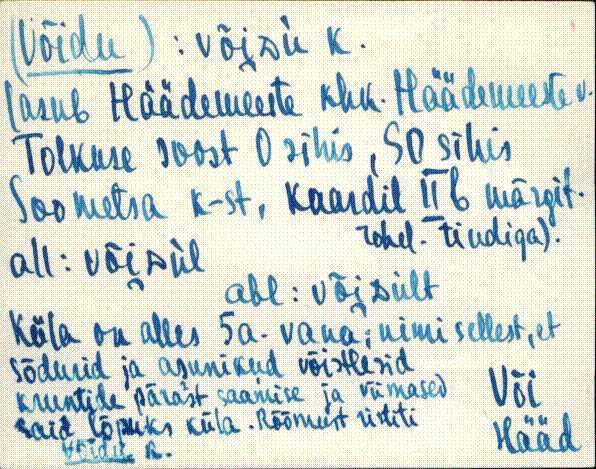 (Võidu) : võiɈsü k.
(asub Häädemeeste khk. Häädemeeste v.
Tolkuse soost O sihis, SO sihis
Soometsa k-st, kaardil II b märgit.
rohel. tindiga).
all: võisül
abl: võisült
Küla on alles 5 a. vana; nimi sellest, et
sõdurid ja asunikud võistlesid
kruntide pärast saamise ja viimased
said lõpuks küla. Rõõmust ristiti
Võidu k.
Või
Hääd